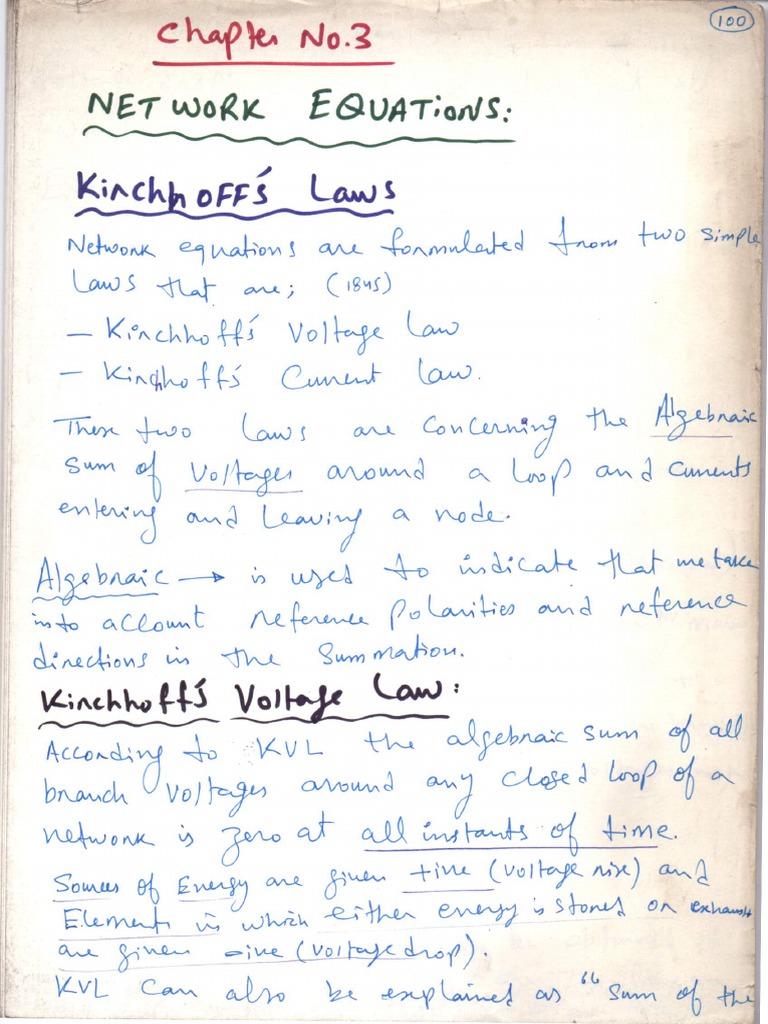 100
Chapter No.3
NETWORK EQUATIONS:
Kirchhoff's Laws
Network equations are formulated from two simple
Laws that are; (1845)
– Kirchhoff's Voltage Law
– Kirchhoff's Current Law.
These two Laws are concerning the Algebraic
sum of voltages around a loop and currents
entering and leaving a node.
Algebraic → is used to indicate that we take
into account reference polarities and reference
directions in the summation.
Kirchhoff's Voltage Law:
According to KVL the algebraic sum of all
branch voltages around any closed loop of a
network is zero at all instants of time.
Sources of Energy are given +ive (voltage rise) and
Elements in which either energy is stored or exhaust
are given -ive (voltage drop).
KVL can also be explained as "sum of the